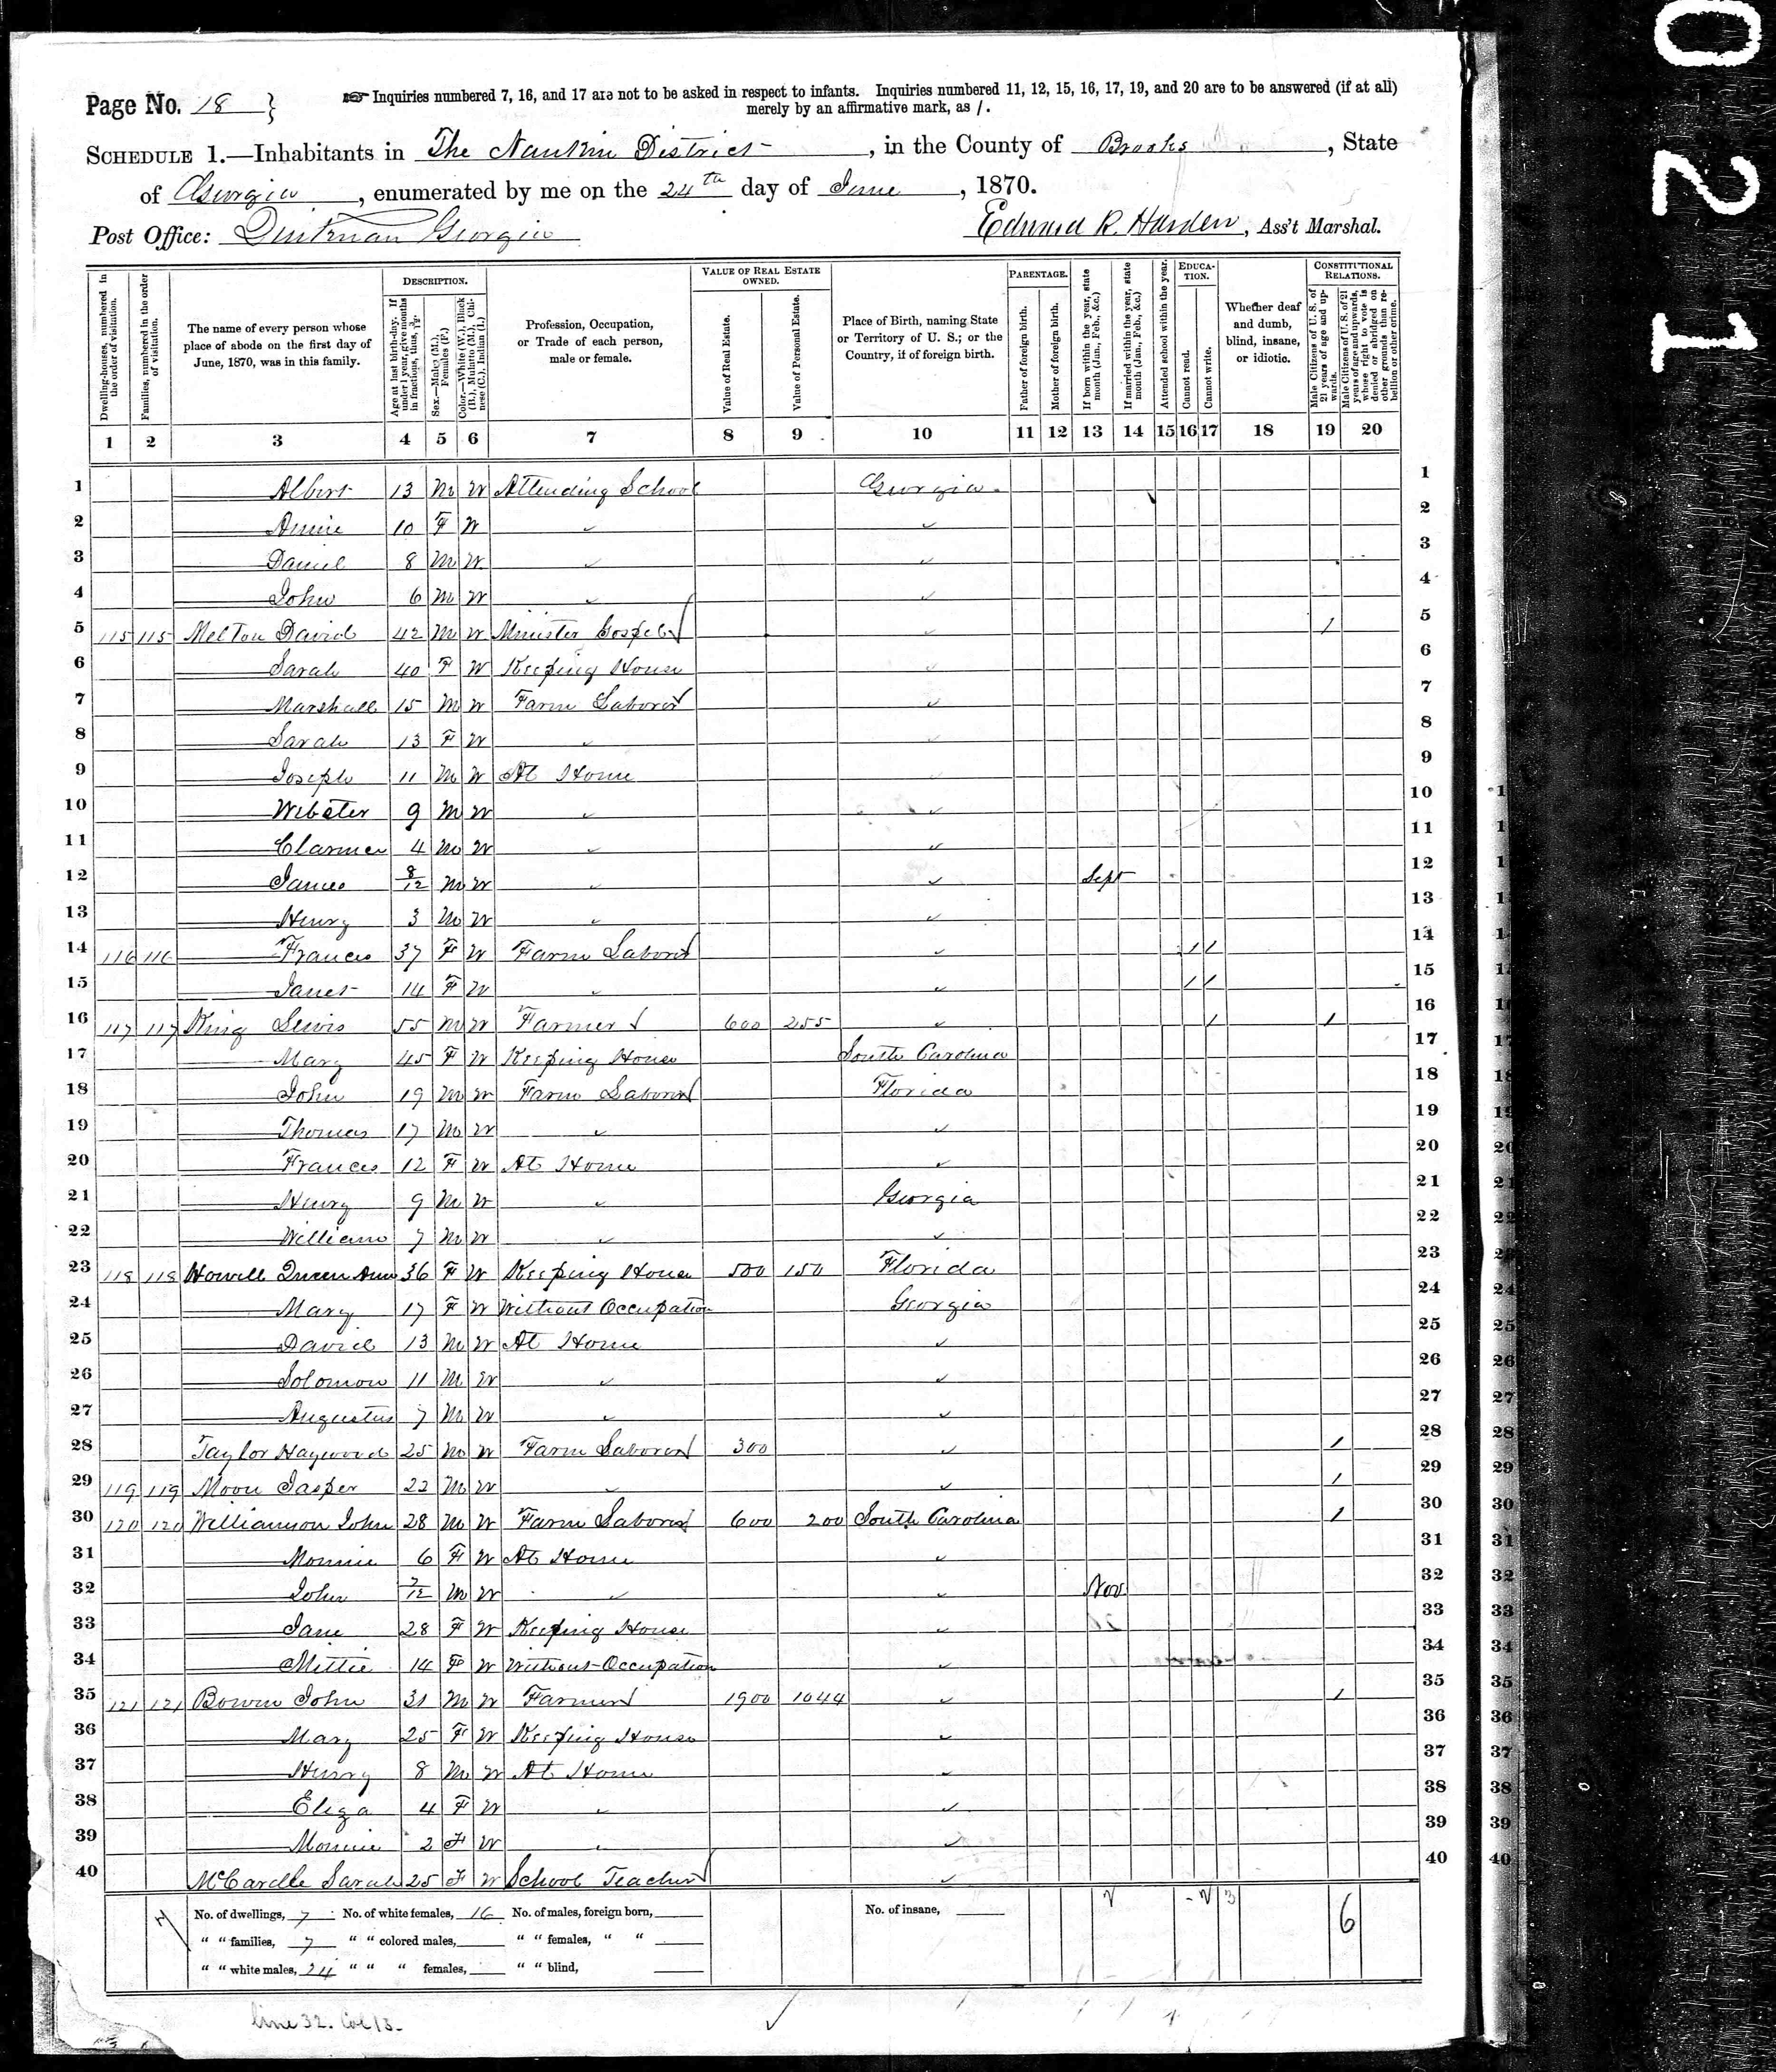 Page No. 18 }
Inquiries numbered 7, 16, and 17 are not to be asked in respect to infants. Inquiries numbered 11, 12, 15, 16, 17, 19, and 20 are to be answered (if at all)
merely by an affirmative mark, as /.
SCHEDULE 1.—Inhabitants in The Nankin District, in the County of Brooks, State
of Georgia, enumerated by me on the 24th day of June, 1870.
Post Office: Quitman Georgia
Edward R. Harden, Ass't Marshal.
Dwelling-houses, numbered in the order of visitation.
Families, numbered in the order of visitation.
The name of every person whose place of abode on the first day of June, 1870, was in this family.
DESCRIPTION.
Age at last birth-day. If under 1 year, give months in fractions, thus, 3/12.
Sex.—Males (M.), Females (F.)
Color.—White (W.), Black (B.), Mulatto (M.), Chinese (C.), Indian (I.)
Profession, Occupation, or Trade of each person, male or female.
VALUE OF REAL ESTATE OWNED.
Value of Real Estate.
Value of Personal Estate.
Place of Birth, naming State or Territory of U. S.; or the Country, if of foreign birth.
PARENTAGE.
Father of foreign birth.
Mother of foreign birth.
If born within the year, state month (Jan., Feb., &c.)
If married within the year, state month (Jan., Feb., &c.)
Attended school within the year.
EDUCATION.
Cannot read.
Cannot write.
Whether deaf and dumb, blind, insane, or idiotic.
CONSTITUTIONAL RELATIONS.
Male Citizens of U. S. of 21 years of age and upwards.
Male Citizens of U. S. of 21 years of age and upwards, whose right to vote is denied or abridged on other grounds than rebellion or other crime.
1 2 3 4 5 6 7 8 9 10 11 12 13 14 15 16 17 18 19 20
1 Albert 13 M W Attending School Georgia 1
2 Annie 10 F W ✓ ✓ 2
3 Daniel 8 M W ✓ ✓ 3
4 John 6 M W ✓ ✓ 4
5 115 115 Melton David 42 M W Minister Gospel ✓ 1 5
6 Sarah 40 F W Keeping House ✓ 6
7 Marshall 15 M W Farm Laborer ✓ 7
8 Sarah 13 F W ✓ ✓ 8
9 Joseph 11 M W At Home 9
10 Webster 9 M W ✓ ✓ 10
11 4 M W ✓ ✓ 11
12 James 8/12 M W ✓ ✓ Sept 12
13 Henry 3 M W ✓ ✓ 13
14 116 116 Frances 37 F W Farm Laborer ✓ / / 14
15 Janet 14 F W ✓ ✓ / / 15
16 117 117 King Lewis 55 M W Farmer 600 255 ✓ / 1 16
17 Mary 45 F W Keeping House South Carolina 17
18 John 19 M W Farm Laborer Florida 18
19 Thomas 17 M W ✓ ✓ 19
20 Frances 12 F W At Home ✓ 20
21 Henry 9 M W ✓ Georgia 21
22 William 7 M W ✓ ✓ 22
23 118 118 Howell Queen Ann 36 F W Keeping House 500 150 Florida 23
24 Mary 17 F W Without Occupation Georgia 24
25 David 13 M W At Home ✓ 25
26 Solomon 11 M W ✓ ✓ 26
27 Augustus 7 M W ✓ ✓ 27
28 Taylor Haywood 25 M W Farm Laborer 300 ✓ 1 28
29 119 119 Moon Jasper 22 M W ✓ ✓ 1 29
30 120 120 Williamson John 28 M W Farm Laborer 600 200 South Carolina 1 30
31 Monnie 6 F W At Home ✓ 31
32 John 7/12 M W ✓ ✓ Nov 32
33 Jane 28 F W Keeping House ✓ 33
34 Mittie 14 F W Without Occupation ✓ 34
35 121 121 Bowen John 31 M W Farmer 1900 1044 ✓ 1 35
36 Mary 25 F W Keeping House ✓ 36
37 Henry 8 M W At Home ✓ 37
38 Eliza 4 F W ✓ ✓ 38
39 Monnie 2 F W ✓ ✓ 39
40 McCardle Sarah 25 F W School Teacher ✓ 40
No. of dwellings, 7 No. of white females, 16 No. of males, foreign born, No. of insane, 3 6
" " families, 7 " " colored males, " " females, " "
" " white males, 24 " " " females, " " blind,
line 32. Col 13.
021